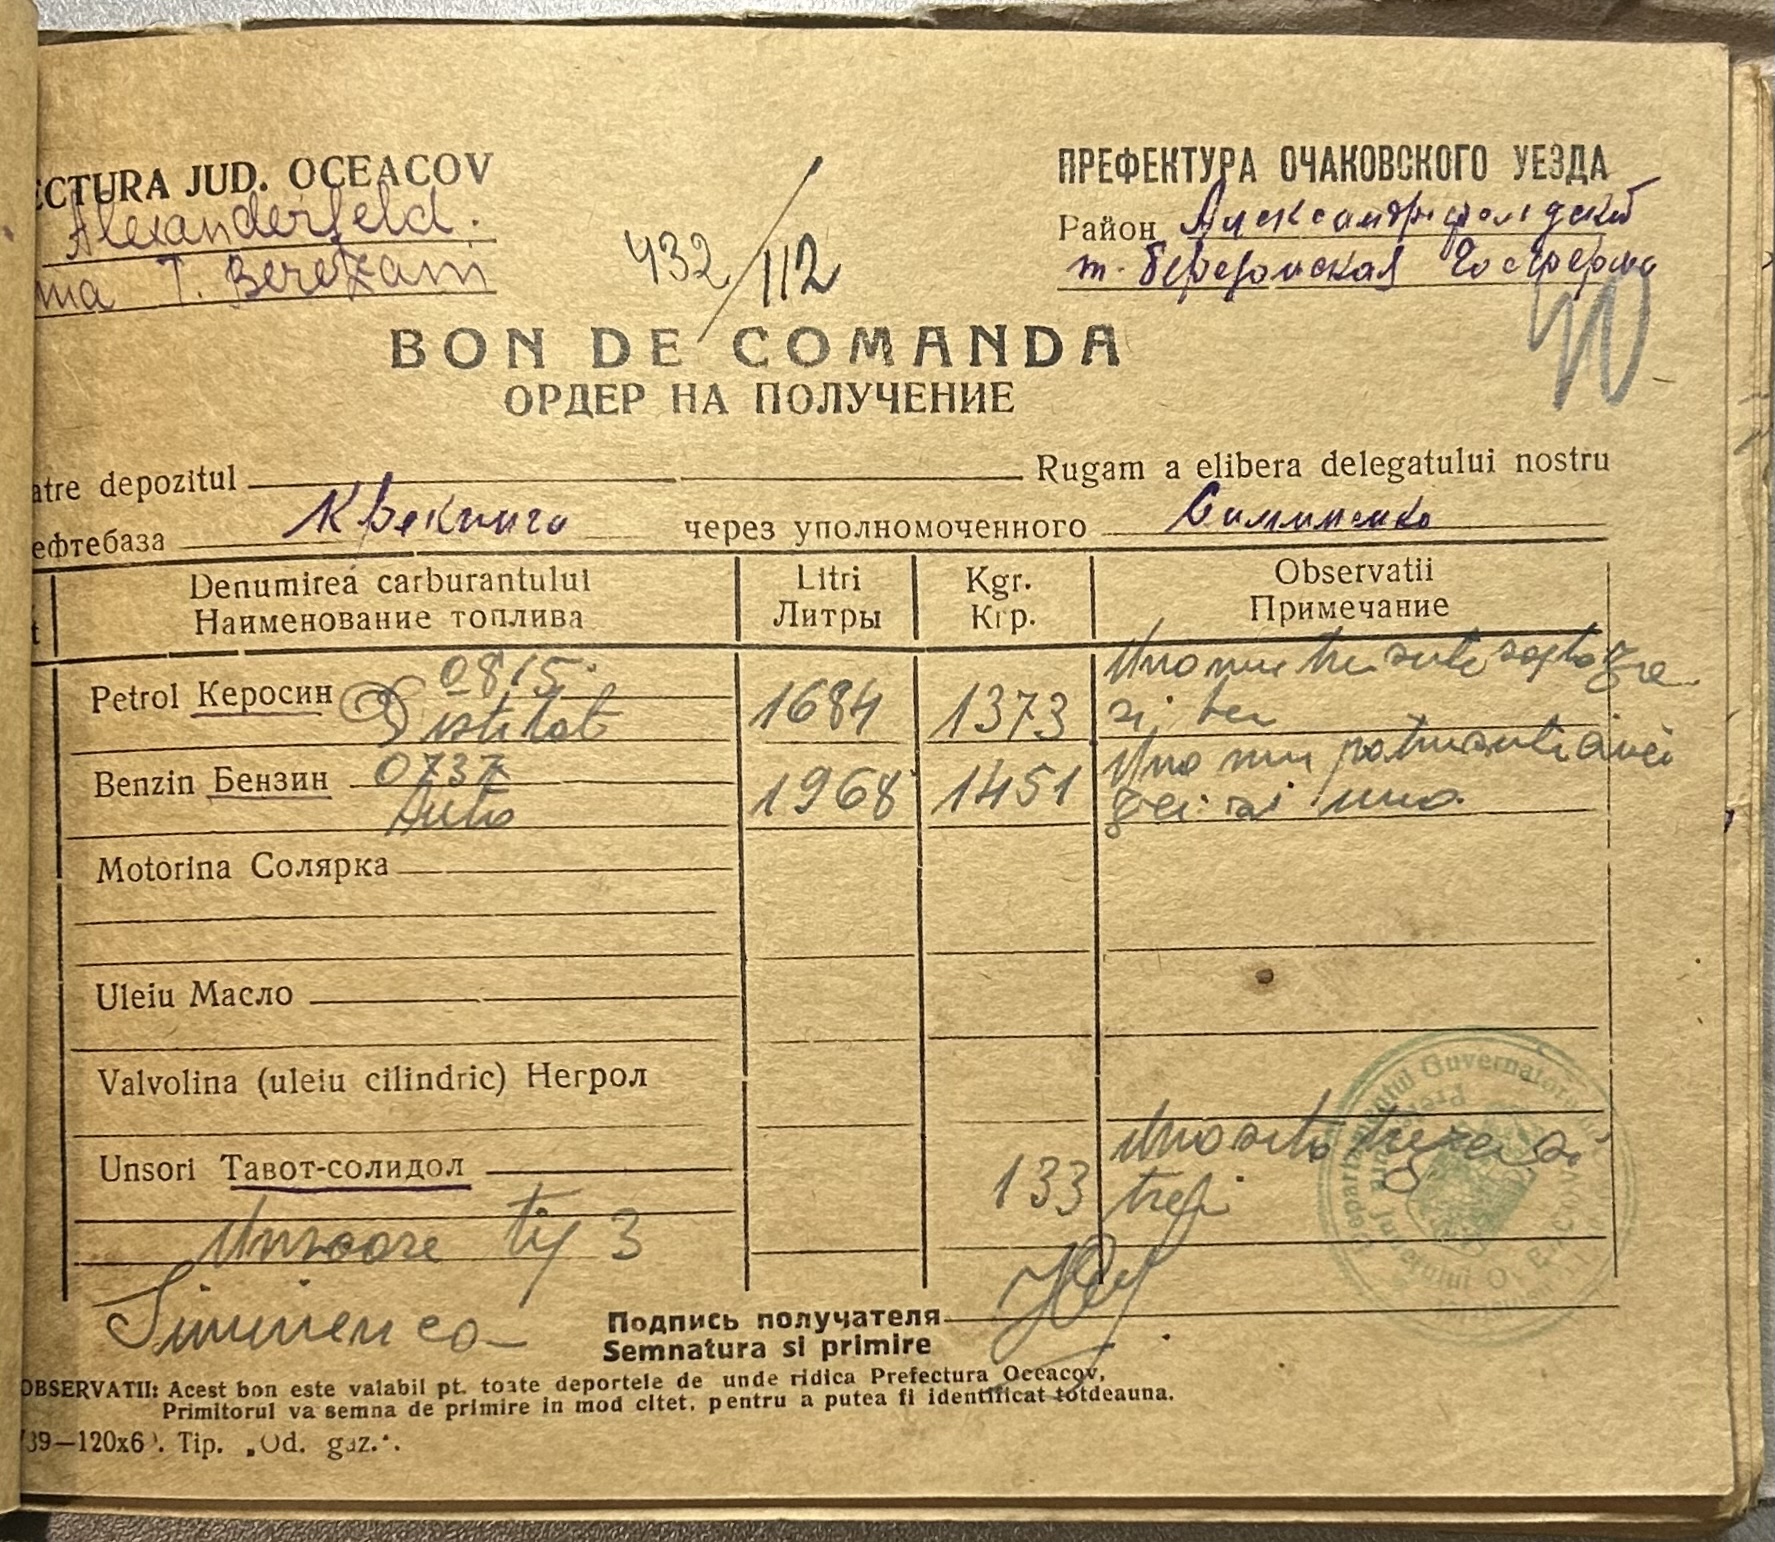 ECTURA JUD. OCEACOV
ПРЕФЕКТУРА ОЧАКОВСКОГО УЕЗДА
Alexanderfeld.
Район Александрфельдский
ma T. Berezani
т. Березанская Госферма
432/112
BON DE COMANDA
ОРДЕР НА ПОЛУЧЕНИЕ
atre depozitul Rugam a elibera delegatului nostru
ефтебаза через уполномоченного Симиненко
t Denumirea carburantului Litri Kgr. Observatii
Наименование топлива Литры Кгр. Примечание
Petrol Керосин 0815 Distilat 1684 1373 Una mie trei sute saptezeci si trei
Benzin Бензин 0737 Auto 1968 1451 Una mie patru sute cinci zeci si una
Motorina Солярка
Uleiu Масло
Valvolina (uleiu cilindric) Негрол
Unsori Тавот-солидол 133 Una suta treizeci si trei
Unsoare tip 3
Simmenco
Подпись получателя
Semnatura si primire
OBSERVATII: Acest bon este valabil pt. toate deportele de unde ridica Prefectura Oceacov,
Primitorul va semna de primire in mod citet, pentru a putea fi identificat totdeauna.
39—120x6 . Tip. „Od. gaz.".